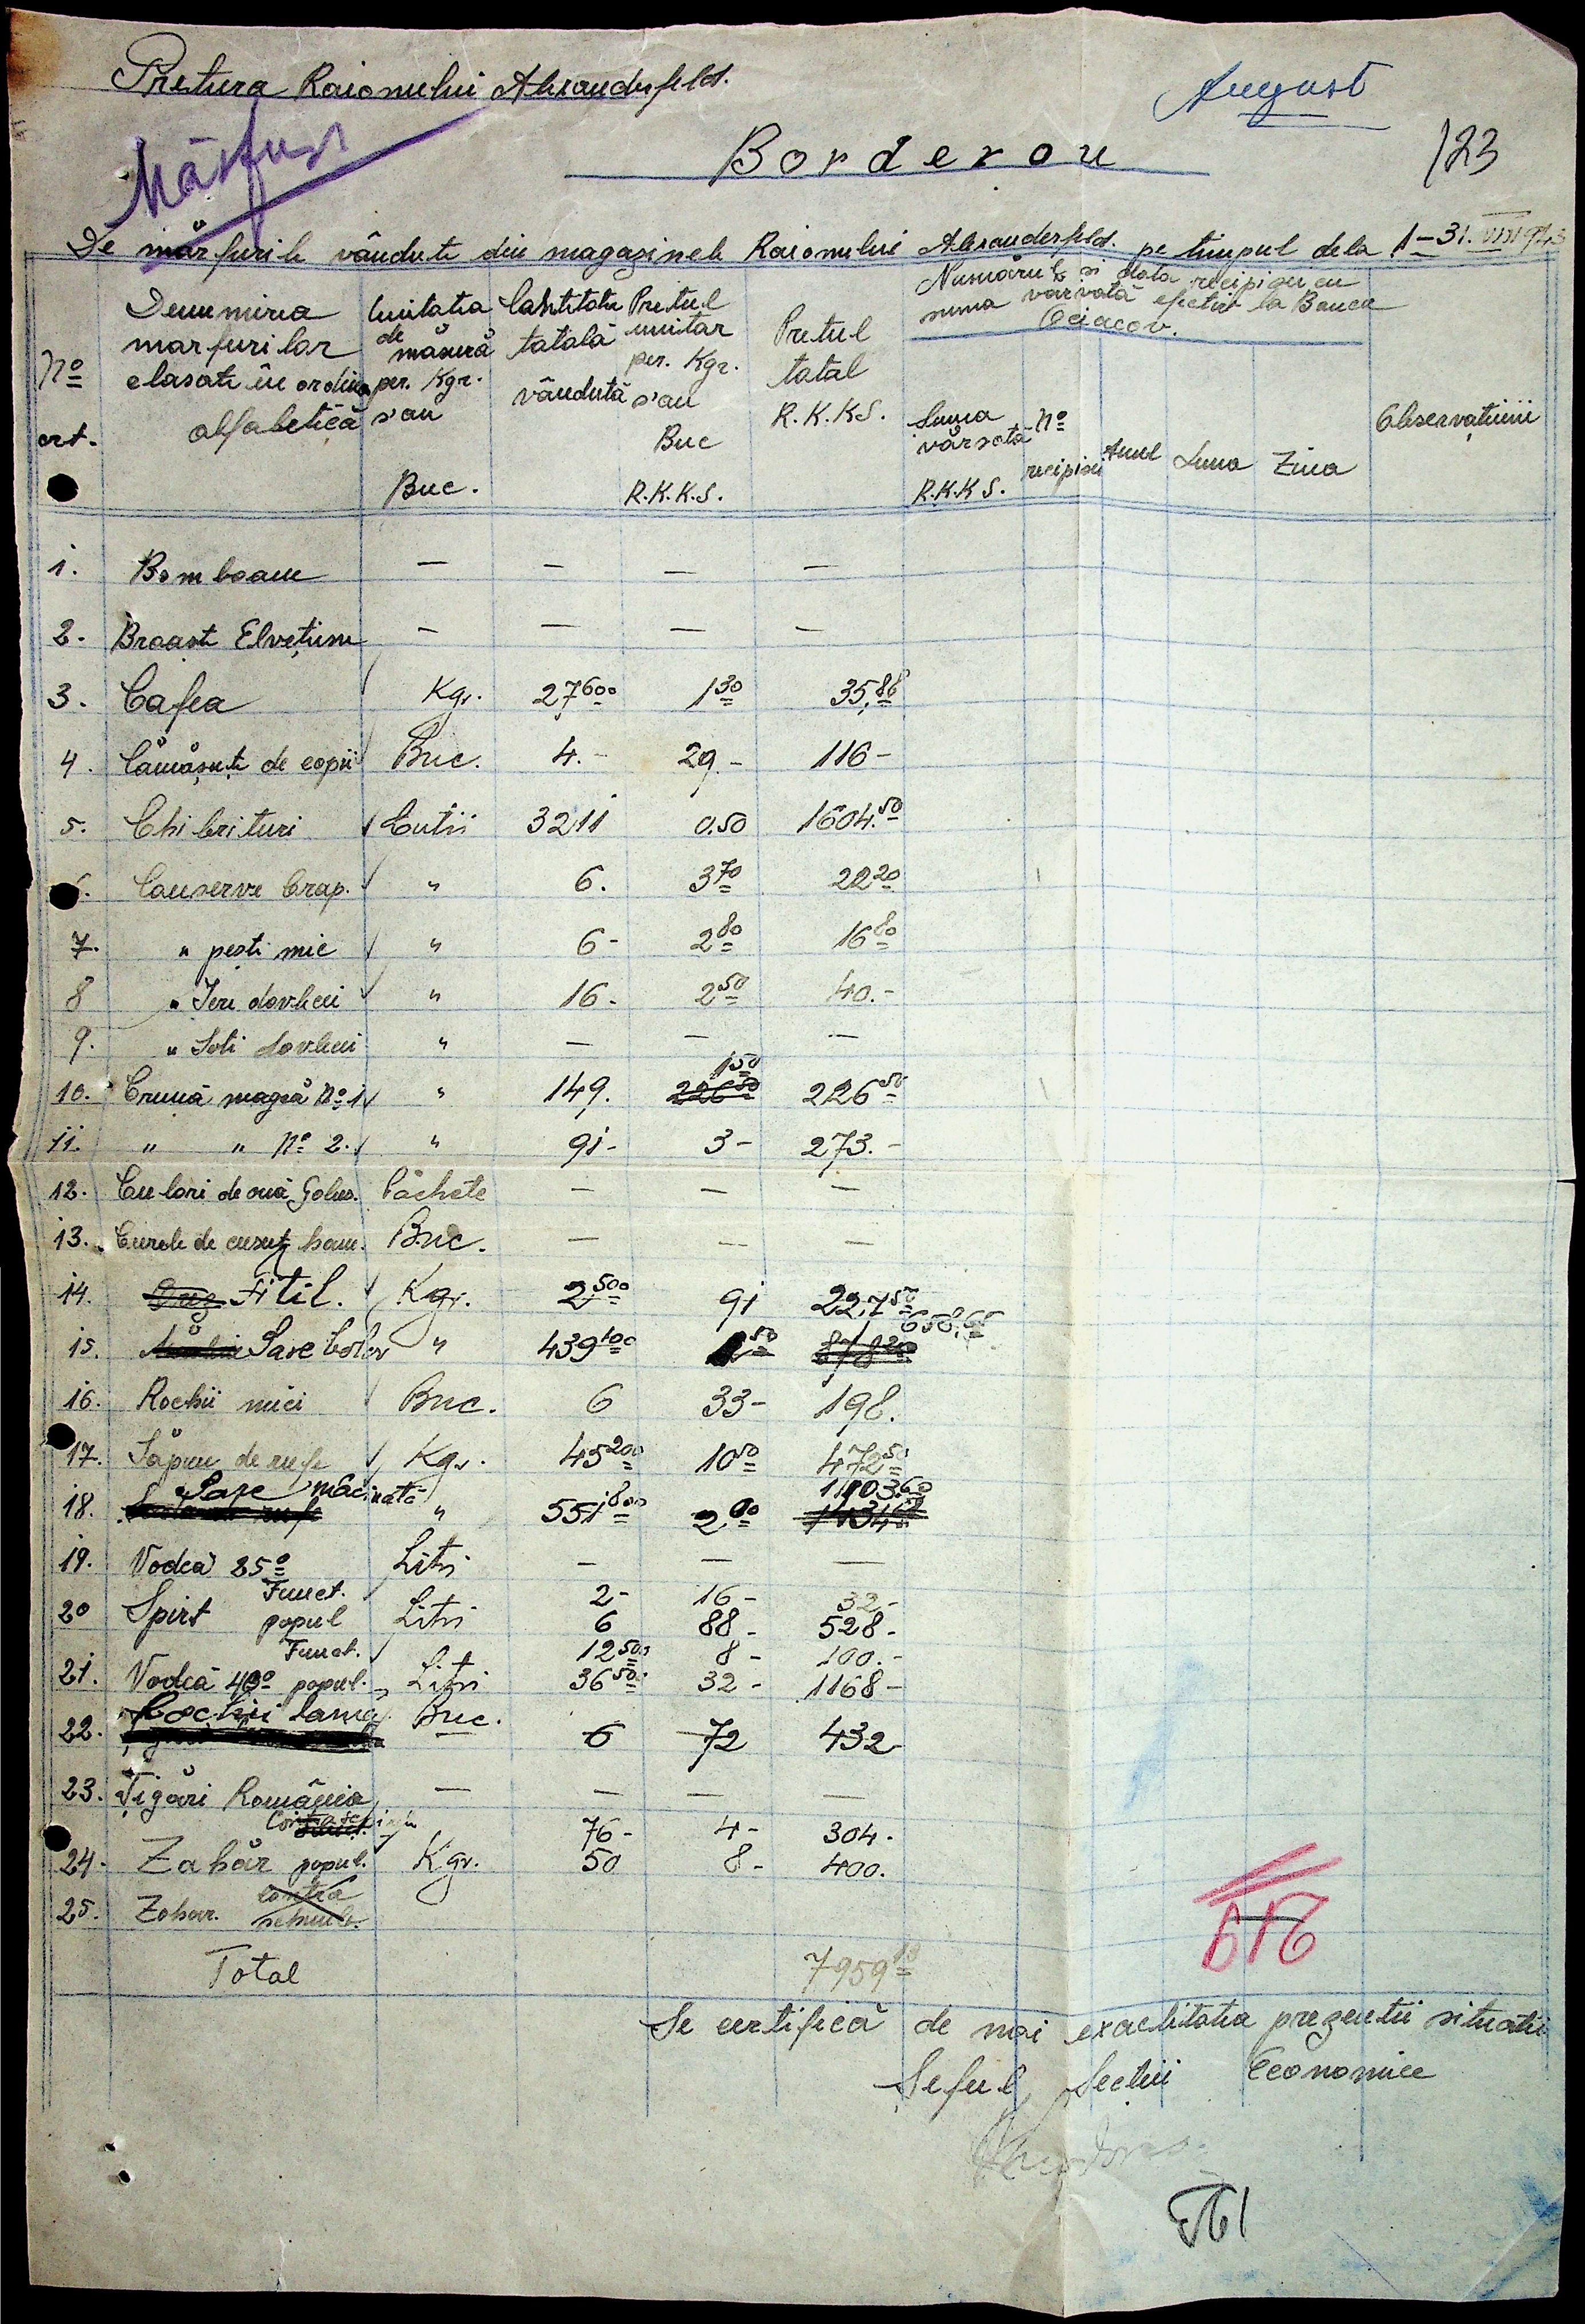 Pretura Raionului Alexanderfeld.
August
Mărfuri
Borderou
123
De mărfurile vândute din magazinele Raionului Alexanderfeld. pe timpul dela 1-31. VIII 943
No crt.
Denumirea marfurilor clasate în ordine alfabetică
Unitatea de măsură per. Kgr. s'au Buc.
Cantitate totală vândută
Pretul unitar per. Kgr. s'au Buc R.K.K.S.
Pretul total R.K.KS.
Numărul si data recipisei cu suma vărsată efectiv la Banca Ociacov.
Suma vărsată R.K.K S.
No recipisei
Anul
Luna
Ziua
Observațiuni
1. Bomboane — — — —
2. Broaște Elvețiene — — — —
3. Cafea Kgr. 27,600 1 30 35,88
4. Cămășuțe de copii Buc. 4.- 29.- 116-
5. Chibrituri Cutii 3211 0.50 1604.50
6. Conserve Crap. " 6. 3 70 22 20
7. " pești mic " 6- 2 80 16 80
8 " Ieri dovleci " 16- 2 50 40.-
9. " Soti dovleci " — — —
10. Cremă neagră No 1 " 149. 226 50 1 50 226 50
11. " " No 2. " 91- 3- 273.-
12. Culori de ouă Galus. Pachete — — —
13. Curele de cusut ham. Buc. — — —
14. Fitil. Kgr. 2,500 91 227 50
15. Sare bolov " 439 100 1 50 878 20 658,65
16. Rochii mici Buc. 6 33- 198.
17. Săpun de rufe Kgr. 45 200 10 50 472 50
18. Sare măcinată " 551 800 2 00 1103.60
19. Vodcă 25o Litri — — —
20 Spirt Funct. 2- 16- 32.-
popul Litri 6 88- 528-
21. Vodcă 40o Funct. 12 500 8- 100.-
popul. Litri 36 500 32- 1168-
22. Rochii lana Buc. 6 72 432-
23. Țigări România — — — —
24. Zahăr 76- 4- 304.
popul. Kgr. 50 8- 400.
25. Zahar. contra semnb.
Total 7959 10
Se certifică de noi exactitatea prezentii situatii
Seful Sectiei Economice